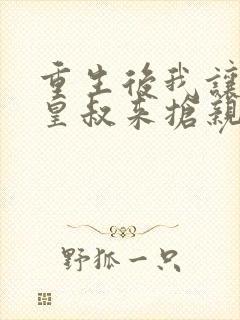 重生後我讓
皇叔來搶親
野狐一只